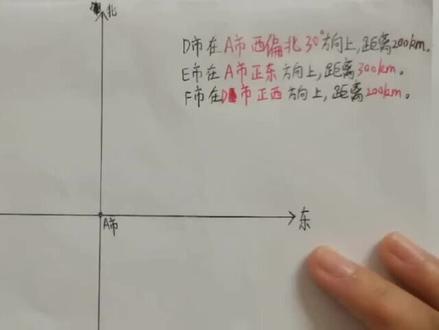 北
D市在A市西偏北30°方向上,距离200km。
E市在A市正东方向上,距离300km。
F市在D市正西方向上,距离200km。
东
A市